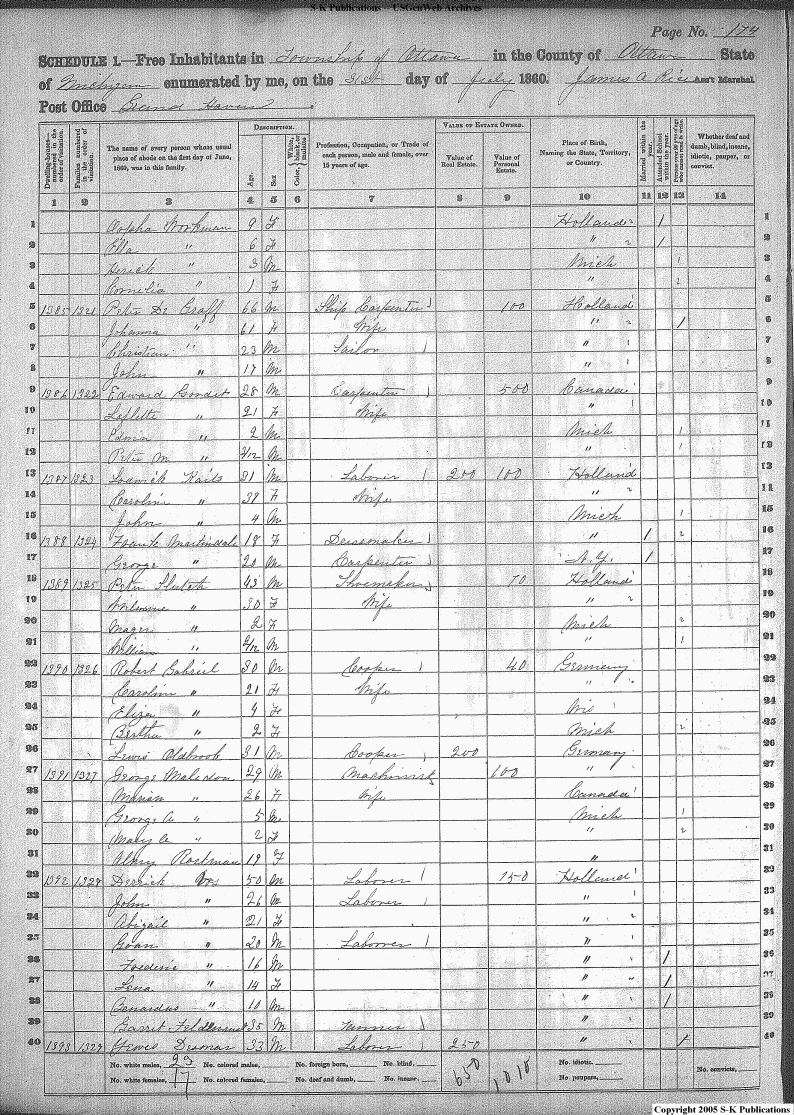 S-K Publications - USGenWeb Archives
Page No. 174
SCHEDULE 1.—Free Inhabitants in Township of Ottawa in the County of Ottawa State
of Michigan enumerated by me, on the 31st day of July 1860. James A Rice Ass't Marshal
Post Office Grand Haven.
Dwelling-houses numbered in the order of visitation.
Families numbered in the order of visitation.
The name of every person whose usual place of abode on the first day of June, 1860, was in this family.
DESCRIPTION.
Age.
Sex
Color, White, black, or mulatto
Profession, Occupation, or Trade of each person, male and female, over 15 years of age.
VALUE OF ESTATE OWNED.
Value of Real Estate.
Value of Personal Estate.
Place of Birth, Naming the State, Territory, or Country.
Married within the year.
Attended School within the year.
Persons over 20 y'rs of age who cannot read & write.
Whether deaf and dumb, blind, insane, idiotic, pauper, or convict.
1 2 3 4 5 6 7 8 9 10 11 12 13 14
1 Workman 9 F Holland 1 1
2 Ella " 6 F " 1 2
3 3 M Mich 3
4 Cornelia " 1 F " 4
5 1385 1321 Peter De Graff 66 M Ship Carpenter 100 Holland 5
6 Johanna " 61 F Wife " 1 6
7 Christian " 23 M Sailor " 7
8 John " 17 M " 8
9 1386 1322 Edward 28 M Carpenter 500 Canada 9
10 " 21 F Wife " 10
11 " 2 M Mich 11
12 Peter M " /12 M " 12
13 1387 1323 31 M Laborer 200 100 Holland 13
14 Carolin " 38 F Wife " 11
15 John " 4 M Mich 15
16 1388 1324 Martindale 18 F Dressmaker " 1 16
17 George " 20 M Carpenter N.Y. 1 17
18 1389 1325 Peter 43 M Shoemaker 70 Holland 18
19 " 30 F Wife " 19
20 " 2 F Mich 20
21 William " /12 M " 21
22 1390 1326 Robert Gabriel 30 M Cooper 40 Germany 22
23 Carolin " 21 F Wife " 23
24 Eliza " 4 F Wis 24
25 Bertha " 2 F Mich 25
26 Lewis 31 M Cooper 200 Germany 26
27 1391 1327 George Maledon 29 M Machinist 100 " 27
28 Marian " 26 F Wife Canada 28
29 George A " 5 M Mich 29
30 Mary C " 2 F " 30
31 19 F " 31
32 1392 1328 Derrick Vos 50 M Laborer 150 Holland 32
33 John " 26 M Laborer " 33
34 Abigail " 21 F " 34
25 " 20 M Laborer " 35
26 " 16 M " 1 26
27 Lena " 14 F " 1 37
28 " 10 M " 1 38
39 Garret 35 M " 39
40 1393 1329 33 M Laborer 250 " 1 40
No. white males, 23 No. colored males, No. foreign born, No. blind, 650 1010 No. idiotic, No. convicts,
No. white females, 17 No. colored females, No. deaf and dumb, No. insane, No. paupers,
Copyright 2005 S-K Publications